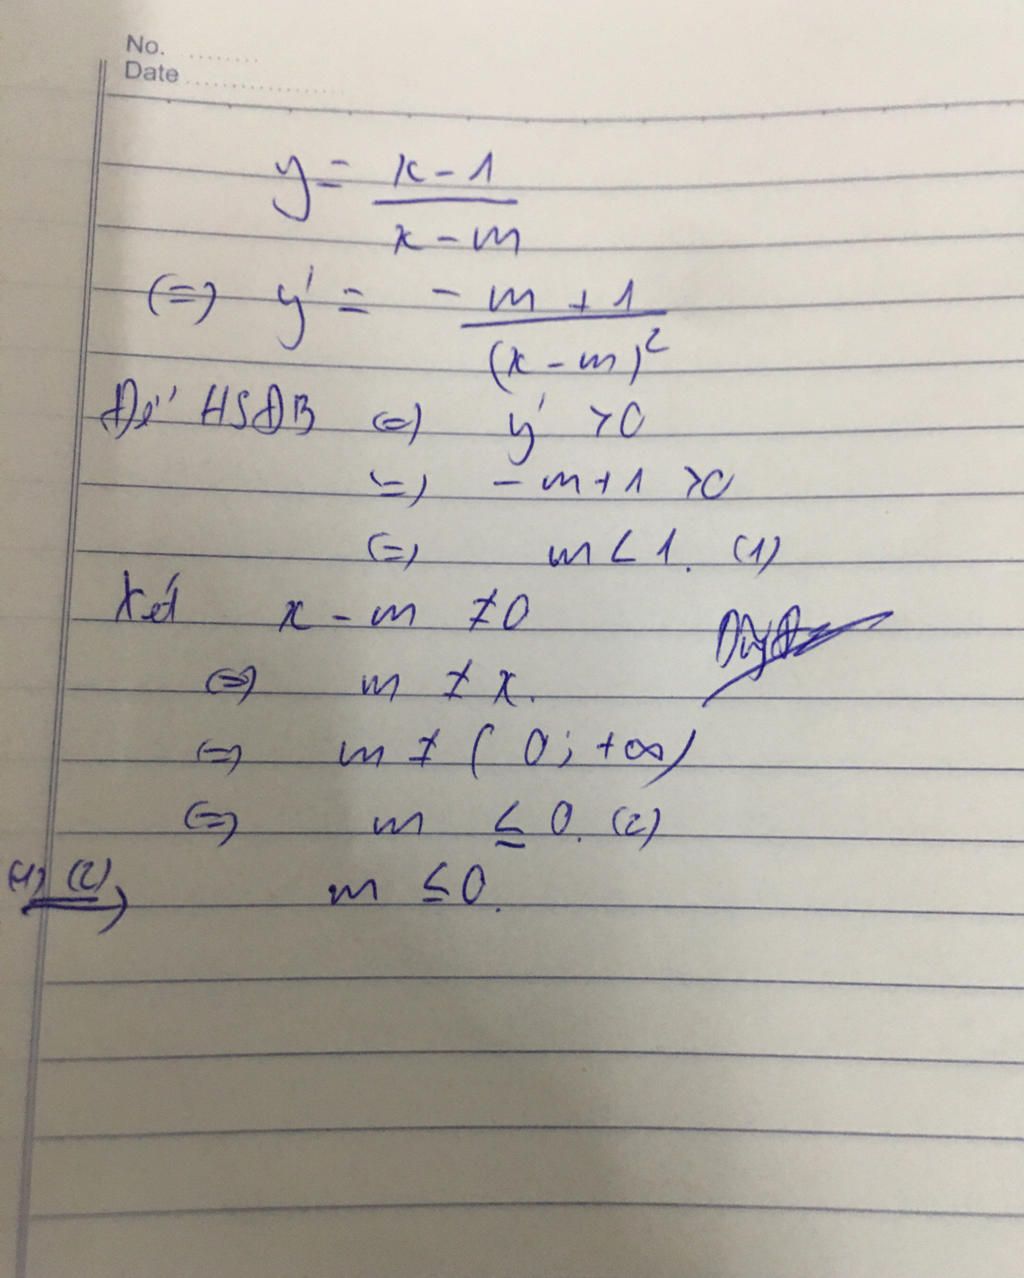 No. ........
Date ..................
y = x - 1 / x - m
(=) y' = - m + 1 / (x - m)²
Để HSĐB (=) y' > 0
(=) - m + 1 > 0
(=) m < 1. (1)
Xét x - m ≠ 0
(=) m ≠ x.
(=) m ≠ ( 0 ; +∞)
(=) m ≤ 0. (2)
(1) (2) m ≤ 0.